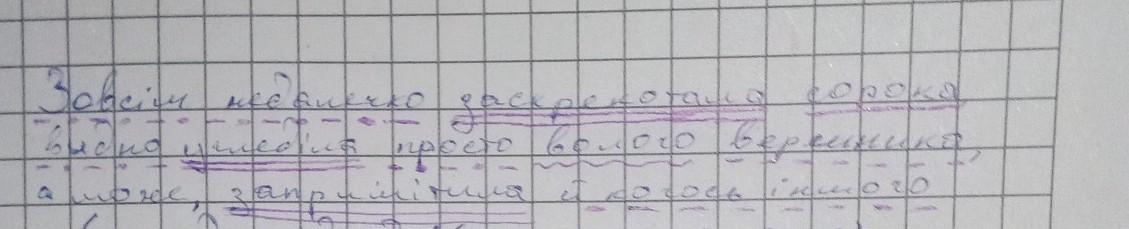 Зовсім недалечко заскреготала сорока,
видно уздріла просто білого вершника,
а може, запримітила й когось іншого